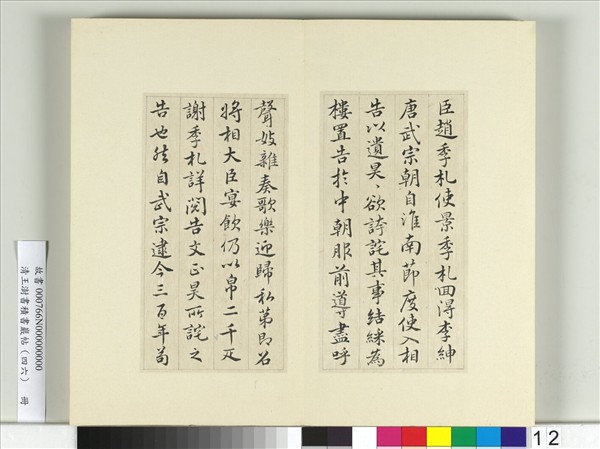 臣趙季札使景季札囬淂李紳
唐武宗朝自淮南莭度使入相
告以遺昊、欲誇詫其事結綵為
樓置告於中朝服前導盡呼
聲妓雜奏歌樂迎歸私第即召
將相大臣宴飲仍以帛二千疋
謝季札詳閱告文正昊所詫之
告也然自武宗逮今三百年苟
故書 000766N000000000
清王澍書積書巖帖(四六) 冊
12